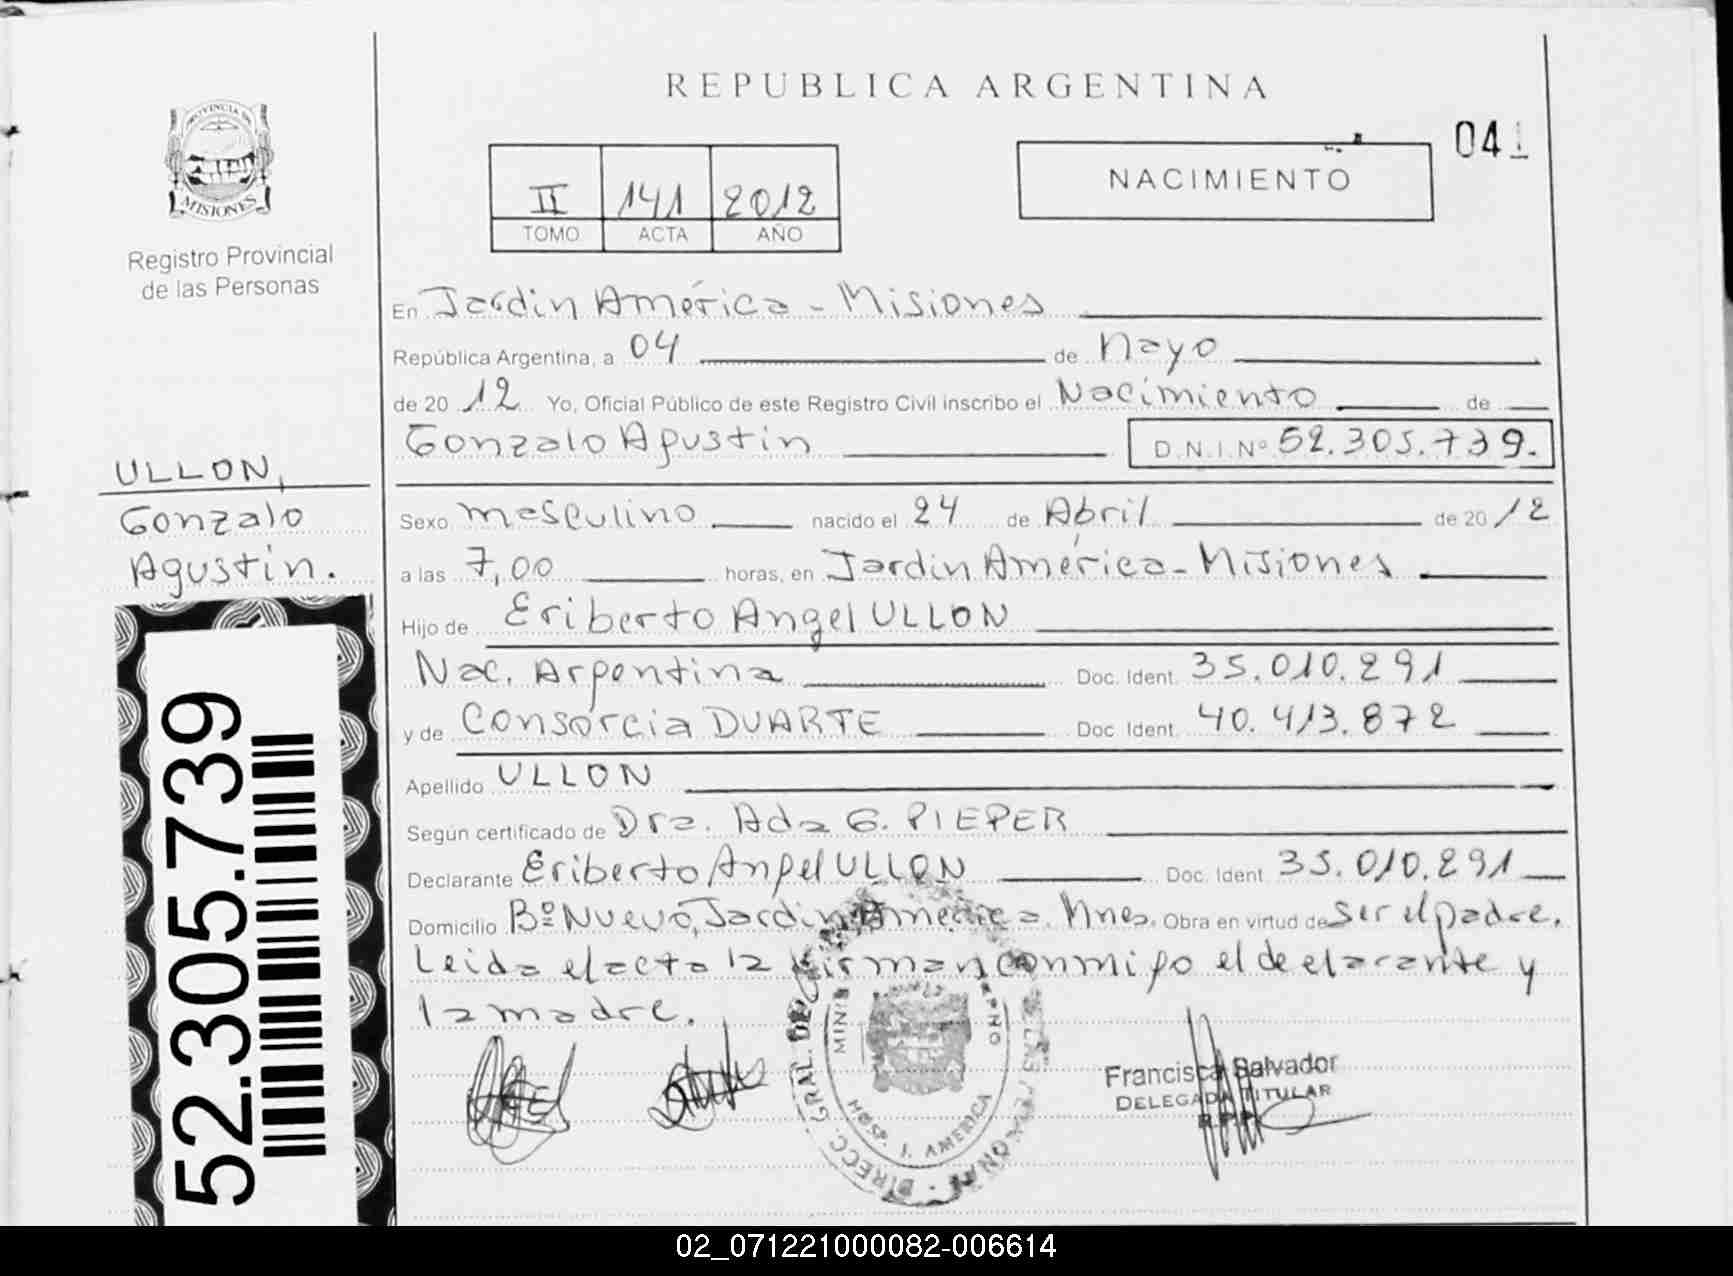 REPUBLICA ARGENTINA
PROVINCIA DE
MISIONES
Registro Provincial
de las Personas
II 141 2012
TOMO ACTA AÑO
NACIMIENTO
041
En Jardin América - Misiones
República Argentina, a 04 de Mayo
de 2012 Yo, Oficial Público de este Registro Civil inscribo el Nacimiento de
Gonzalo Agustin D.N.I. Nº 52.305.739.
ULLON,
Gonzalo
Agustin.
Sexo masculino nacido el 24 de Abril de 2012
a las 7,00 horas, en Jardin América - Misiones
Hijo de Eriberto Angel ULLON
Nac. Argentina Doc. Ident. 35.010.291
y de Consorcia DUARTE Doc. Ident. 40.413.872
Apellido ULLON
Según certificado de Dra. Ada G. PIEPER
Declarante Eriberto Angel ULLON Doc. Ident. 35.010.291
Domicilio Bº Nuevo, Jardin America. Mnes. Obra en virtud de Ser el padre.
Leida el acta la firman conmigo el declarante y
la madre.
52.305.739
DIRECC. GRAL. DEL
MINIS
HOSP. J. AMERICA
Francisca Salvador
DELEGADA TITULAR
R.P.P.
02_071221000082-006614